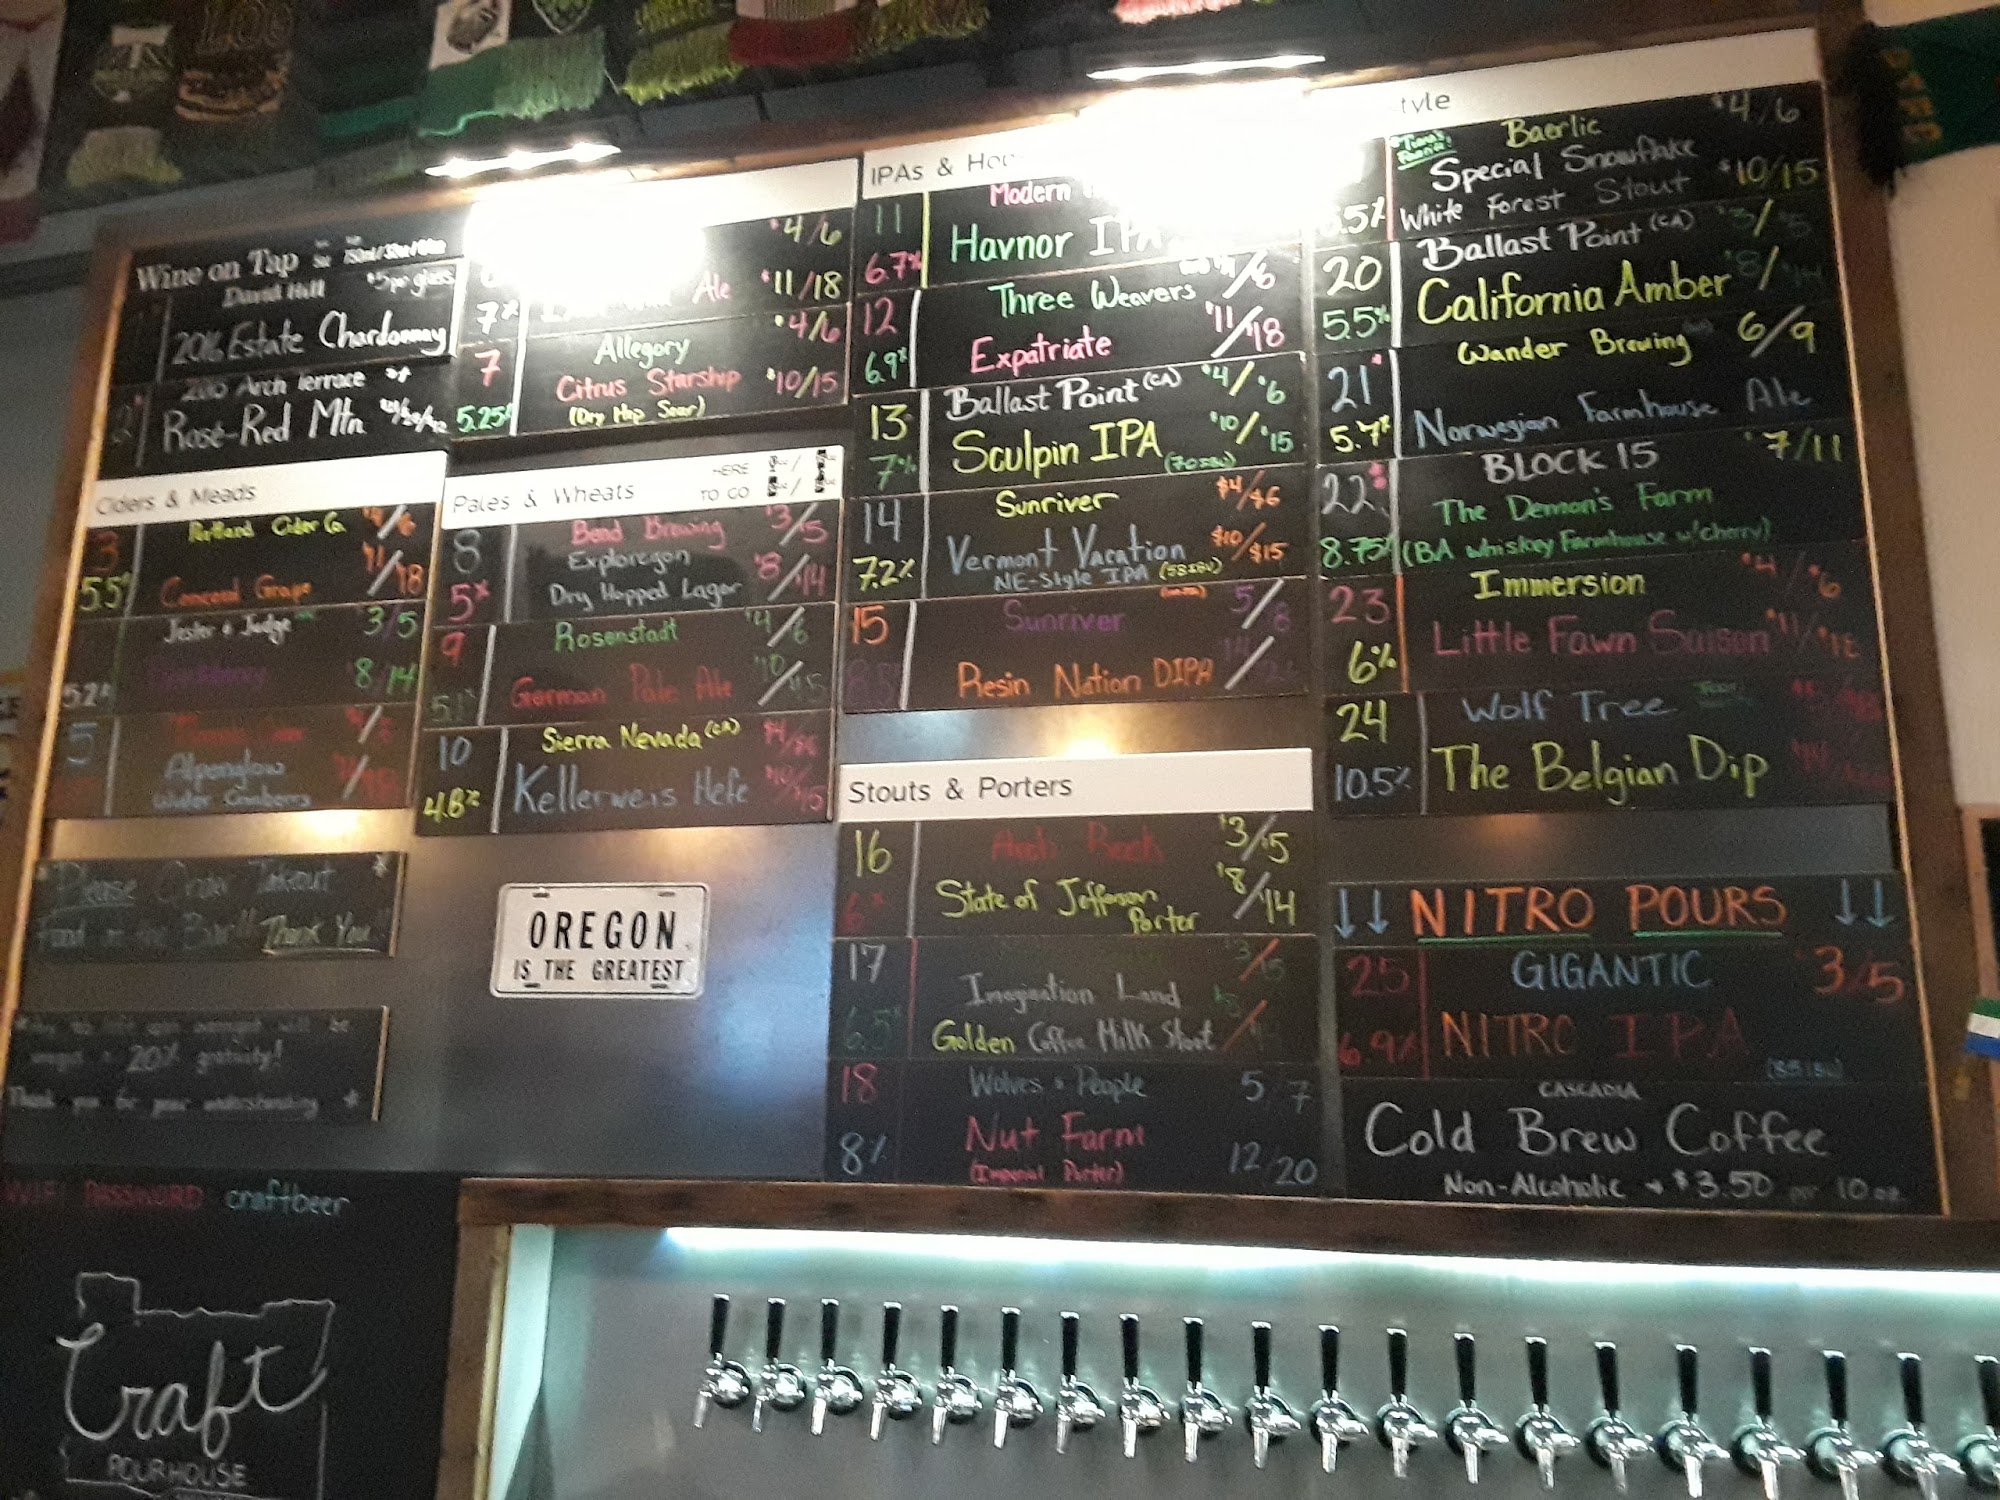 Wine on Tap
David Hill $5 per glass
2016 Estate Chardonnay
2
2016 Arch Terrace
Rosé-Red Mtn
Ciders & Meads
3 Portland Cider Co. /6
5.5% Concord Grape 11/18
Jester & Judge 3/5
5.2% 8/14
5
Alpenglow
Please Order Takeout
Food at the Bar!! Thank You!
will be
20% gratuity!
Thank you for your understanding
WIFI PASSWORD craftbeer
Craft
POURHOUSE
$4/6
7% Ale $11/18
7 Allegory $4/6
Citrus Starship $10/15
5.25% (Dry Hop Sour)
Pales & Wheats HERE
TO GO
8 Bend Brewing $3/5
Exploregon
5% Dry Hopped Lager $8/14
9 Rosenstadt $4/6
5.1% German Pale Ale 10/15
10 Sierra Nevada (CA) $4/$6
4.8% Kellerweis Hefe $10/15
OREGON
IS THE GREATEST
IPAs & Ho
11 Modern
6.7% Havnor IPA
12 Three Weavers /6
6.9% Expatriate $11/$18
13 Ballast Point (CA) $4/$6
7% Sculpin IPA (70 IBU) $10/$15
14 Sunriver $4/$6
Vermont Vacation $10/$15
7.2% NE-Style IPA (53 IBU)
15 Sunriver 5/8
8.5% Resin Nation DIPA
Stouts & Porters
16 Arch Rock $3/$5
6% State of Jefferson $8/14
Porter
17 3/5
Imagination Land
6.5% Golden Coffee Milk Stout
18 Wolves & People 5/7
Nut Farm
8% (Imperial Porter) 12/20
tyle
Baerlic $4/6
Special Snowflake $10/15
.5% White Forest Stout
20 Ballast Point (CA) $3/$5
5.5% California Amber $8/$14
21 Wander Brewing 6/9
5.7% Norwegian Farmhouse Ale
22 BLOCK 15 $7/11
The Demon's Farm
8.75% (BA whiskey Farmhouse w/ cherry)
23 Immersion $4/$6
6% Little Fawn Saison $11/$18
24 Wolf Tree
10.5% The Belgian Dip
↓↓ NITRO POURS ↓↓
25 GIGANTIC 3/5
6.9% NITRO IPA
(85 IBU)
CASCADIA
Cold Brew Coffee
Non-Alcoholic → $3.50 per 10 oz.